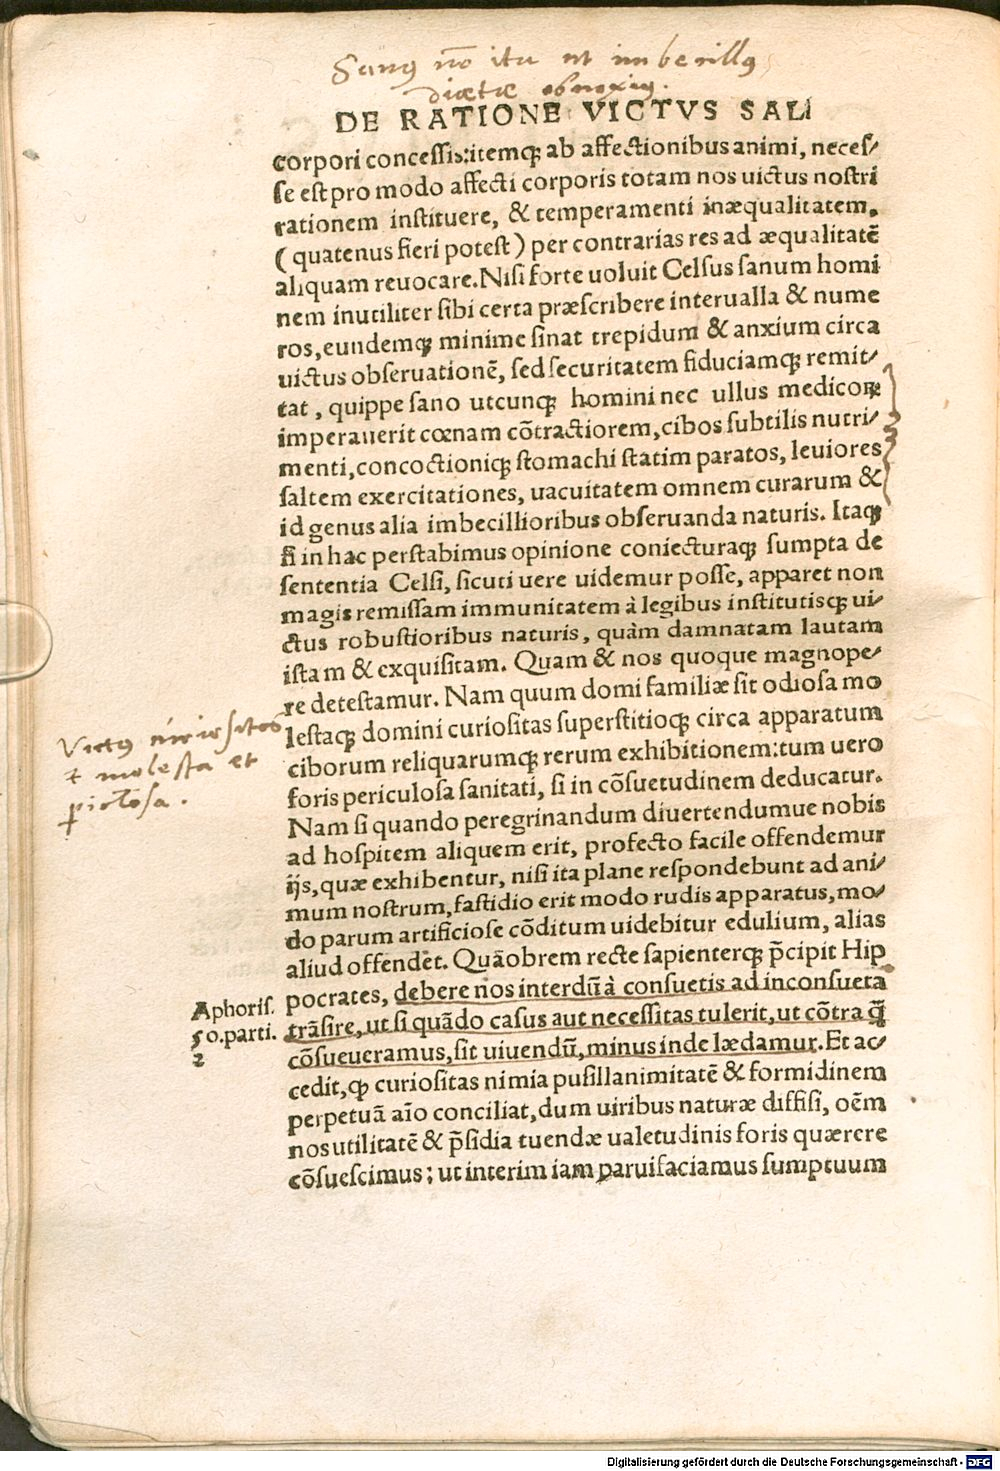 Sanus nō ita ut imbecillus
diætæ obnoxius.
DE RATIONE VICTVS SALI
corpori concessis: itemq; ab affectionibus animi, neces-
se est pro modo affecti corporis totam nos uictus nostri
rationem instituere, & temperamenti inæqualitatem,
( quatenus fieri potest ) per contrarias res ad æqualitatē
aliquam reuocare. Nisi forte uoluit Celsus sanum homi
nem inutiliter sibi certa præscribere interualla & nume
ros, eundemq; minime sinat trepidum & anxium circa
uictus obseruationē, sed securitatem fiduciamq; remit-
tat, quippe sano utcunq; homini nec ullus medicoꝝ
imperauerit cœnam cōtractiorem, cibos subtilis nutri-
menti, concoctioniq; stomachi statim paratos, leuiores
saltem exercitationes, uacuitatem omnem curarum &
id genus alia imbecillioribus obseruanda naturis. Itaq;
si in hac perstabimus opinione coniecturaq; sumpta de
sententia Celsi, sicuti uere uidemur posse, apparet non
magis remissam immunitatem à legibus institutisq; ui-
ctus robustioribus naturis, quàm damnatam lautam
istam & exquisitam. Quam & nos quoque magnope-
re detestamur. Nam quum domi familiæ sit odiosa mo
lestaq; domini curiositas superstitioq; circa apparatum
ciborum reliquarumq; rerum exhibitionem: tum uero
foris periculosa sanitati, si in cōsuetudinem deducatur.
Nam si quando peregrinandum diuertendumue nobis
ad hospitem aliquem erit, profecto facile offendemur
ijs, quæ exhibentur, nisi ita plane respondebunt ad ani-
mum nostrum, fastidio erit modo rudis apparatus, mo-
do parum artificiose cōditum uidebitur edulium, alias
aliud offendet. Quāobrem recte sapienterq; p̄cipit Hip
pocrates, debere nos interdū à consuetis ad inconsueta
trāsire, ut si quādo casus aut necessitas tulerit, ut cōtra q̄
cōsueueramus, sit uiuendū, minus inde lædamur. Et ac-
cedit, ꝙ curiositas nimia pusillanimitatē & formidinem
perpetuā aīo conciliat, dum uiribus naturæ diffisi, oēm
nos utilitatē & p̄sidia tuendæ ualetudinis foris quærere
cōsuescimus; ut interim iam paruifaciamus sumptuum
Victus curiositas
molesta et
Aphoris.
50. parti.
2
Digitalisierung gefördert durch die Deutsche Forschungsgemeinschaft - DFG